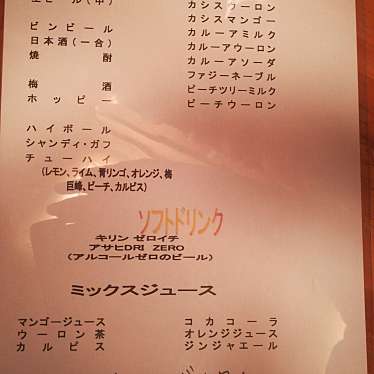 生ビール(中)
ビンビール
日本酒(一合)
焼酎
梅酒
ホッピー
ハイボール
シャンディ・ガフ
チューハイ
(レモン、ライム、青リンゴ、オレンジ、梅
巨峰、ピーチ、カルピス)
カシスウーロン
カシスマンゴー
カルーアミルク
カルーアウーロン
カルーアソーダ
ファジーネーブル
ピーチツリーミルク
ピーチウーロン
ソフトドリンク
キリン ゼロイチ
アサヒDRI ZERO
(アルコールゼロのビール)
ミックスジュース
マンゴージュース
ウーロン茶
カルピス
コカコーラ
オレンジジュース
ジンジャエール